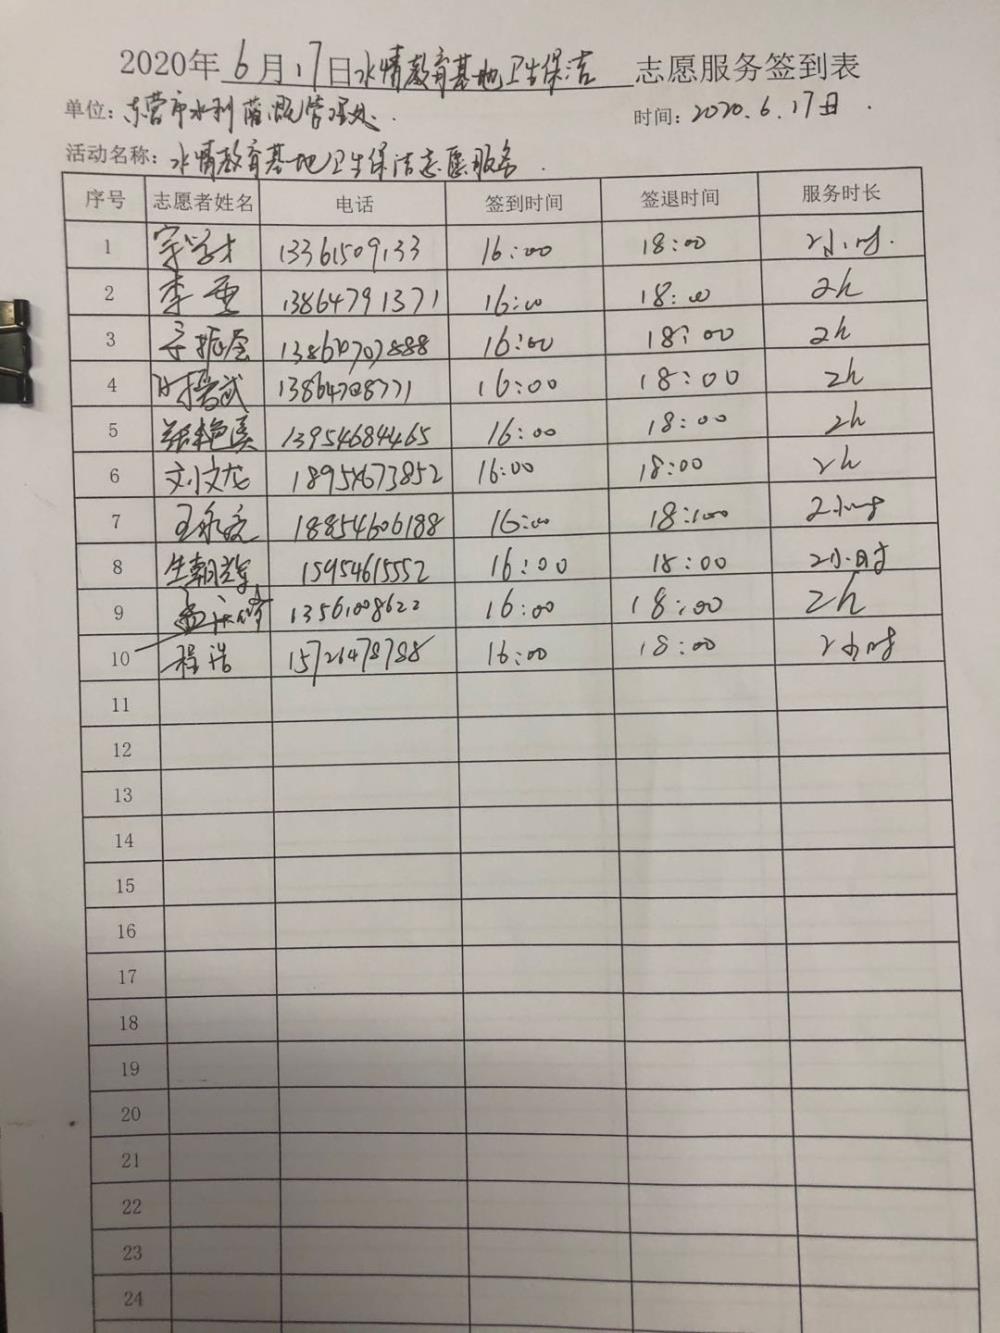 2020年6月17日水情教育基地卫生保洁 志愿服务签到表
单位: 东营市水利灌溉管理处.
时间: 2020.6.17日.
活动名称: 水情教育基地卫生保洁志愿服务.
序号 志愿者姓名 电话 签到时间 签退时间 服务时长
1 13361509133 16:00 18:00 2小时.
2 李亜 13864791371 16:00 18:00 2h
3 13864707888 16:00 18:00 2h
4 13864708771 16:00 18:00 2h
5 13954684465 16:00 18:00 2h
6 刘文龙 18954673852 16:00 18:00 2h
7 18854606188 16:00 18:00 2小时
8 15954615552 16:00 18:00 2小时
9 13561008622 16:00 18:00 2h
10 程浩 15726478788 16:00 18:00 2小时
11
12
13
14
15
16
17
18
19
20
21
22
23
24